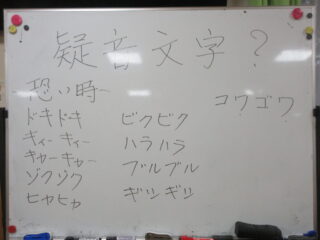 疑音文字?
恐い時
ドキドキ
キィーキィー
キャーキャー
ゾクゾク
ヒャヒャ
ビクビク
ハラハラ
ブルブル
ギシギシ
コワゴワ